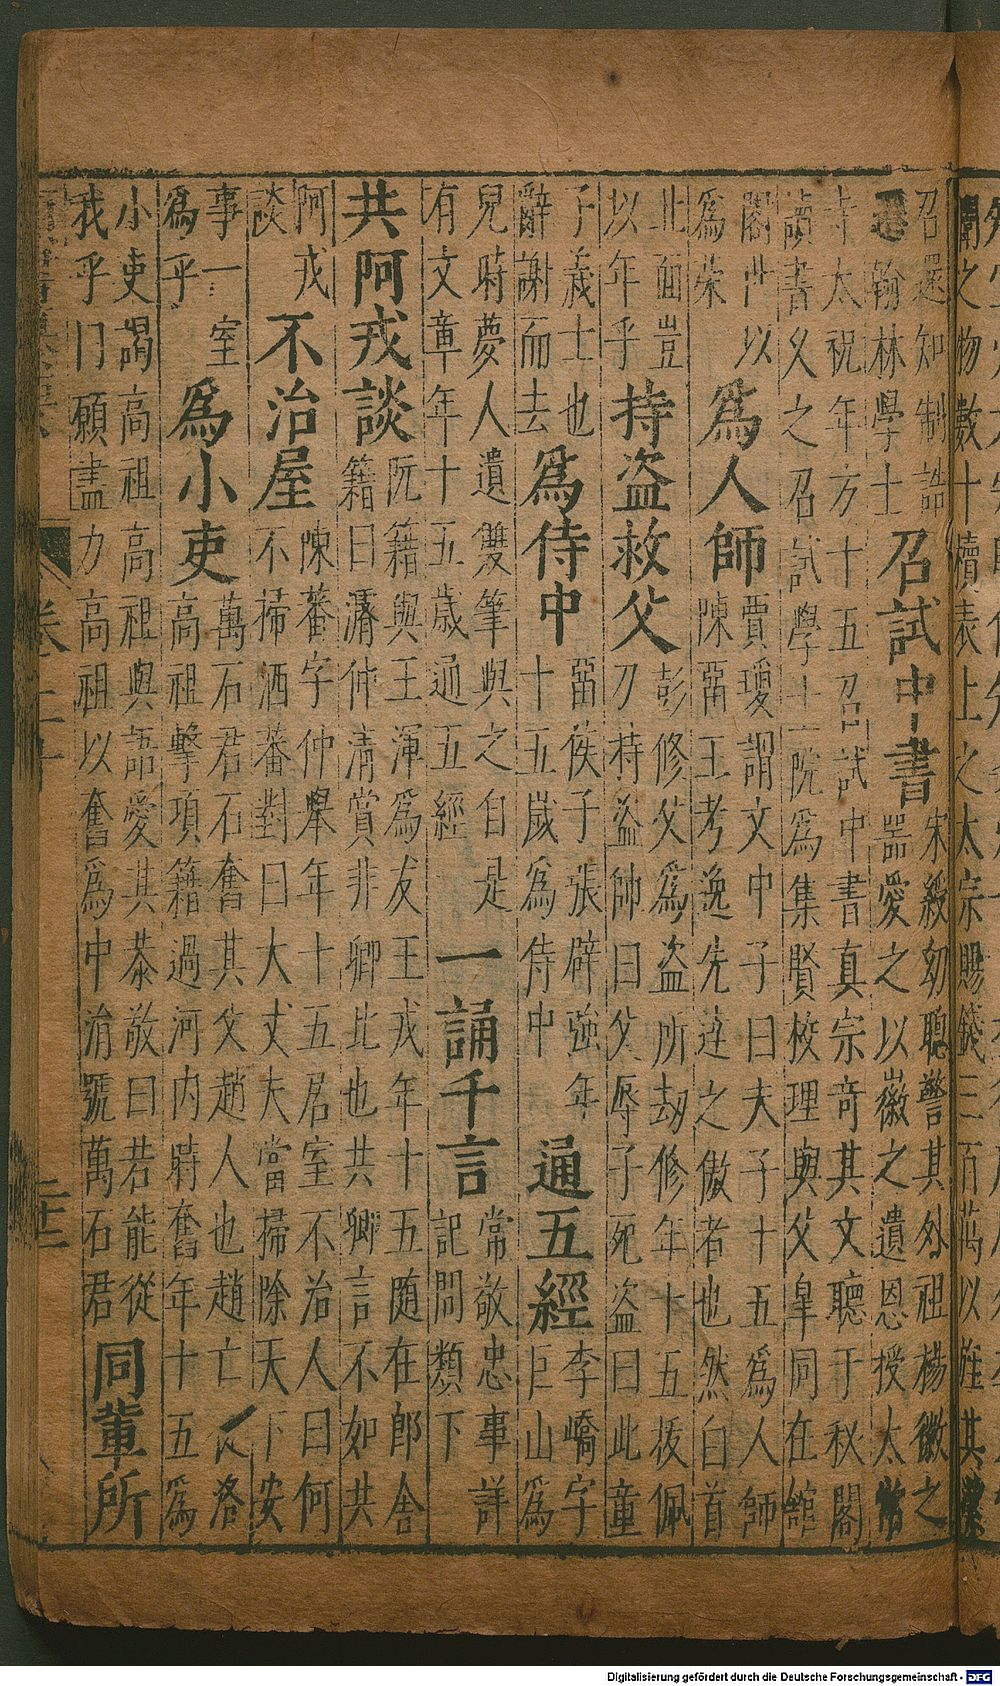 蘭之物數十牘表上之太宗賜錢三百萬以旌其
召還知制誥
翰林學士
召試中書
宋綬幼聰警其外祖楊徽之
器愛之以徽之遺恩授太常
寺太祝年方十五召試中書真宗奇其文聽于秘閣
讀書久之召試學士院爲集賢校理與父皐同在館
閣世以
爲榮
爲人師
賈瓊謂文中子曰夫子十五爲人師
陳畱王考逸先逹之傲者也然白首
北面豈
以年乎
持盗救父
彭修父爲盗所劫修年十五拔佩
刀持盗帥曰父辱子死盗曰此童
子義士也
辭謝而去
爲侍中
畱侯子張辟強年
十五嵗爲侍中
通五經
李嶠字
巨山爲
兒時夢人遺雙筆與之自是
有文章年十五嵗通五經
一誦千言
常敬忠事詳
記問類下
共阿戎談
阮籍與王渾爲友王戎年十五随在郎舎
籍曰濬仲清賞非卿比也共卿言不如共
阿戎
談
不治屋
陳蕃字仲舉年十五居室不治人曰何
不掃洒蕃對曰大丈夫當掃除天下安
事一室
爲乎
爲小吏
萬石君石奮其父趙人也趙亡洛
高祖擊項籍過河内時奮年十五爲
小吏謁高祖高祖與語愛其恭敬曰若能從
我乎門願盡力高祖以奮爲中涓號萬石君
同輩所
Digitalisierung gefördert durch die Deutsche Forschungsgemeinschaft - DFG